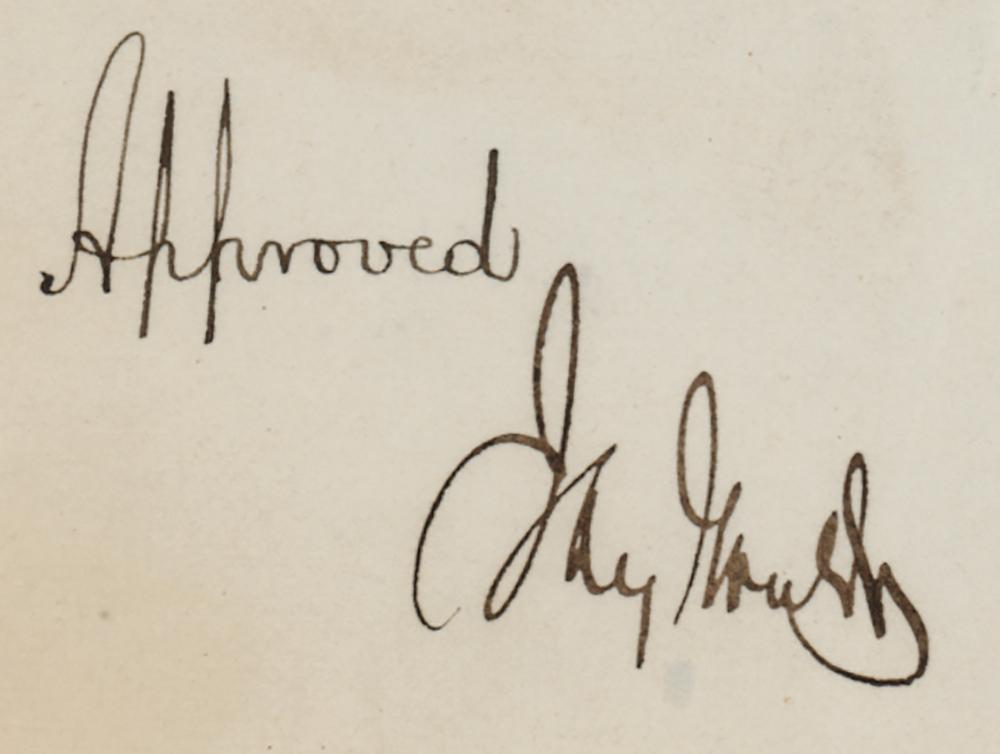 Approved
Jay Gould